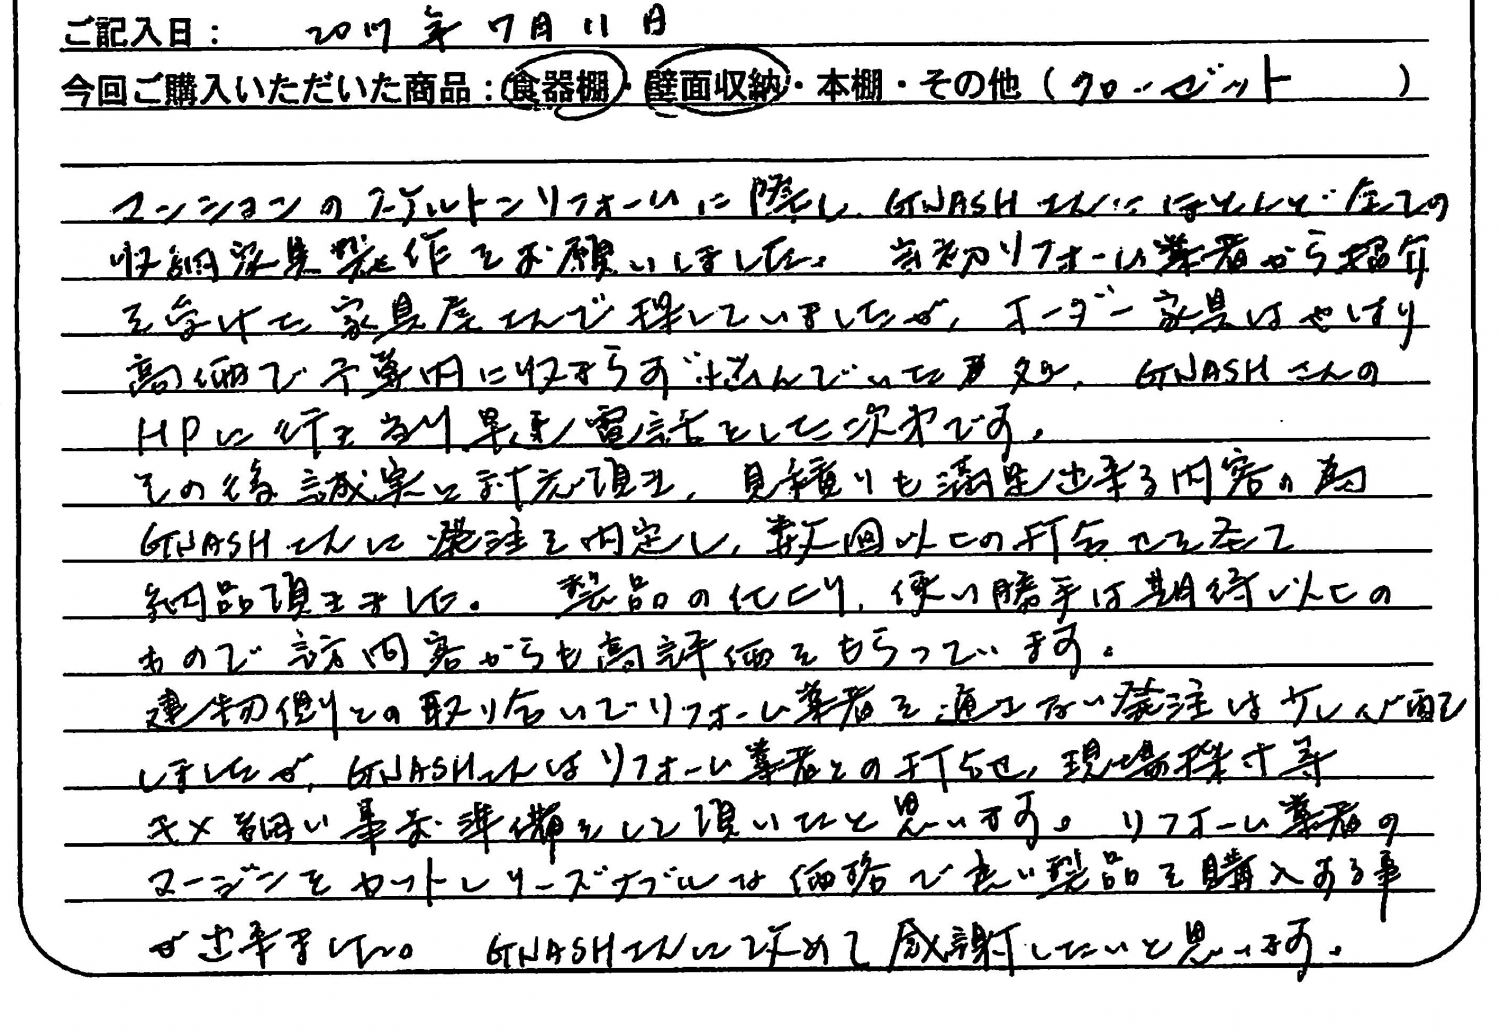 ご記入日： 2017年 7月 11日
今回ご購入いただいた商品：食器棚・壁面収納・本棚・その他（クローゼット　　　）
マンションのスケルトンリフォームに際し、GNASHさんにほとんど全ての
収納家具製作をお願いしました。 当初リフォーム業者から紹介
を受けた家具屋さんで探していましたが、オーダー家具はやはり
高価で予算内に収まらず悩んでいた処、GNASHさんの
HPに行き当り早速電話をした次第です。
その後誠実に対応頂き、見積りも満足出来る内容の為
GNASHさんに発注を内定し、数回以上の打合せを経て
納品頂きました。 製品の仕上り、使い勝手は期待以上の
もので訪問客からも高評価をもらっています。
建物側との取り合いでリフォーム業者を通さない発注は少し心配
しましたが、GNASHさんはリフォーム業者との打合せ、現場採寸等
キメ細い事前準備をして頂いたと思います。 リフォーム業者の
マージンをカットしリーズナブルな価格で良い製品を購入する事
が出来ました。 GNASHさんに改めて感謝したいと思います。